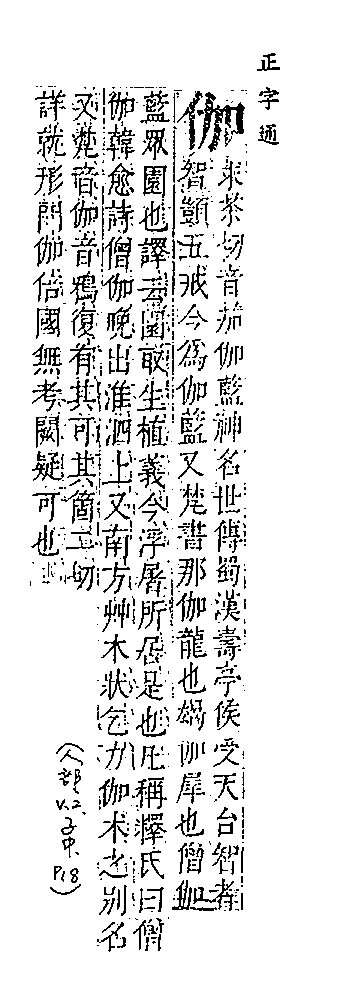 正字通
伽
求茶切音茄伽藍神名世傳蜀漢壽亭侯受天台智者
智顗五戒今為伽藍又梵書那伽龍也朅伽犀也僧伽
藍眾園也譯云園取生植義今浮屠所居是也凡稱釋氏曰僧
伽韓愈詩僧伽晚出淮泗上又南方艸木狀乞力伽术之別名
又梵音伽音鴉復有其可其箇二切
詳就形附伽倍國無考闕疑可也
(人部
V.2,
子中,
P18)